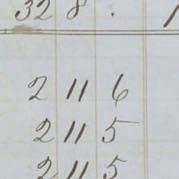 32 8 .
2 11 6
2 11 5
2 11 5